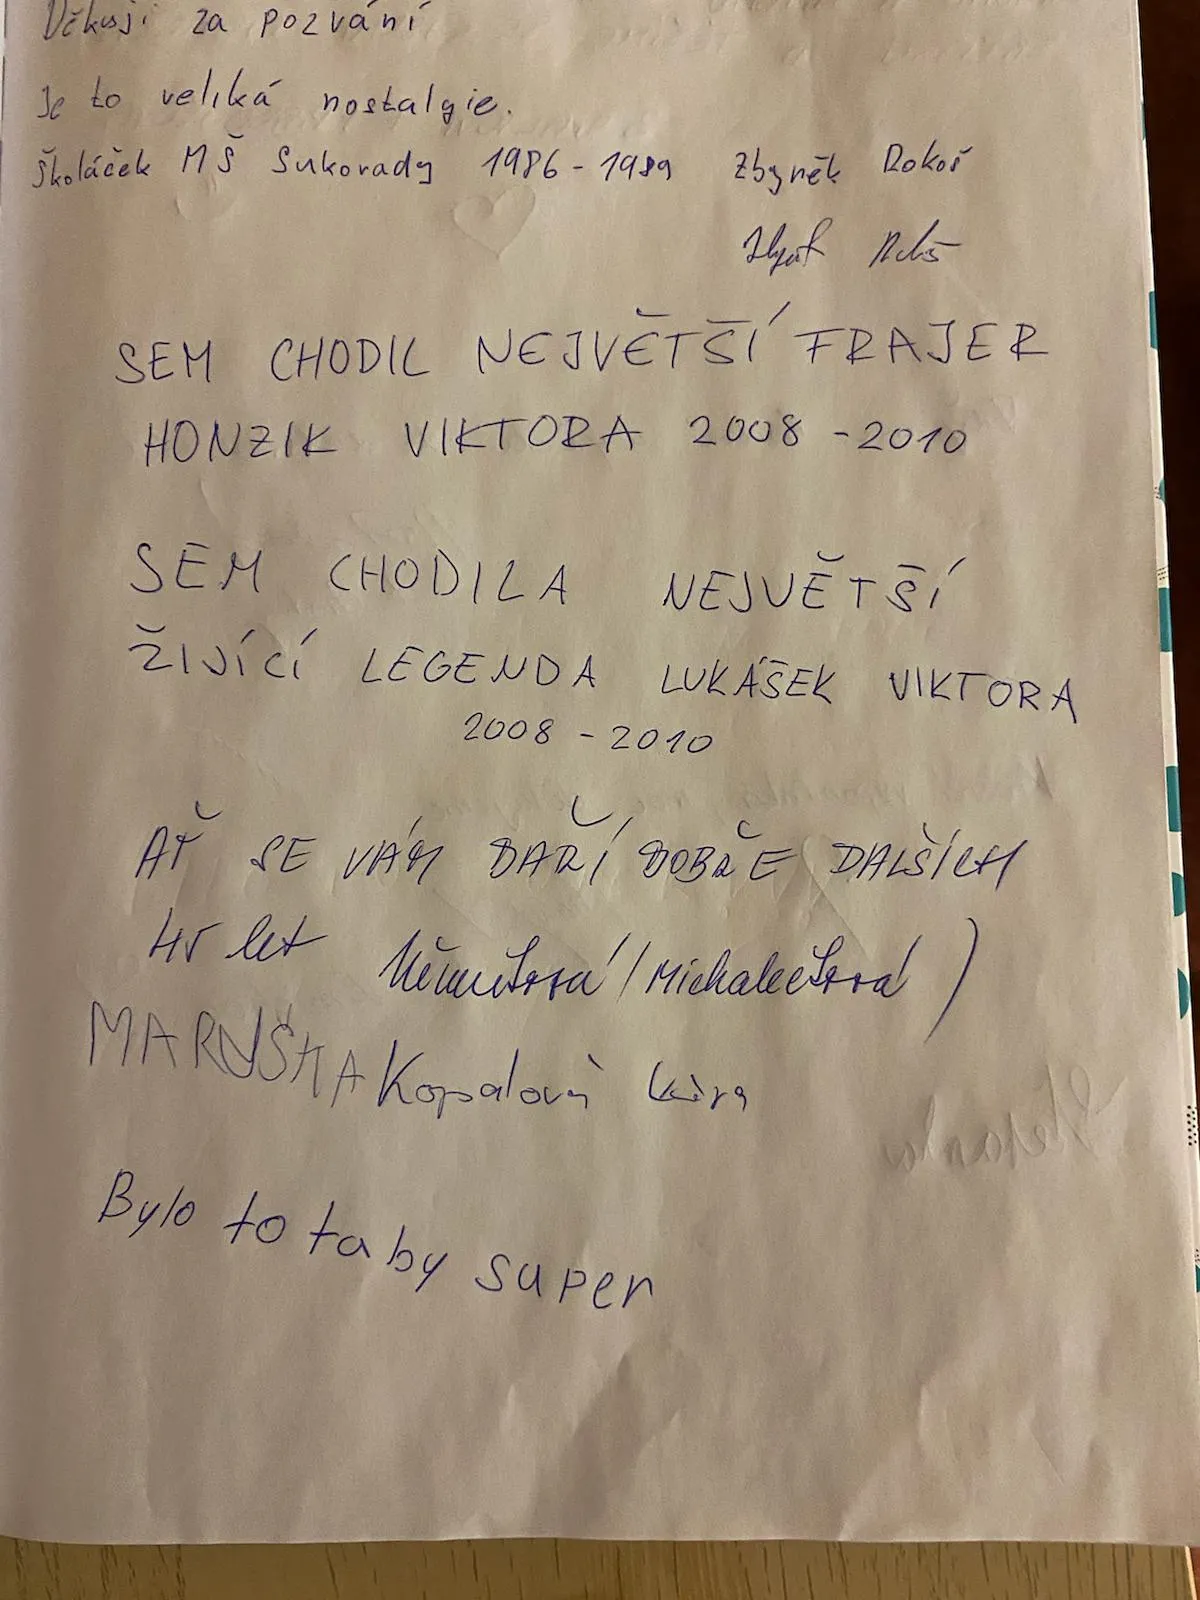 Děkuji za pozvání
Je to veliká nostalgie.
Školáček MŠ Sukorady 1986-1989 Zbyněk Rokoš
SEM CHODIL NEJVĚTŠÍ FRAJER
HONZIK VIKTORA 2008-2010
SEM CHODILA NEJVĚTŠÍ
ŽIJÍCÍ LEGENDA LUKÁŠEK VIKTORA
2008-2010
AŤ SE VÁM DAŘÍ DOBŘE DALŠÍCH
45 let
MARUŠKA Kopalová
Bylo to taby super